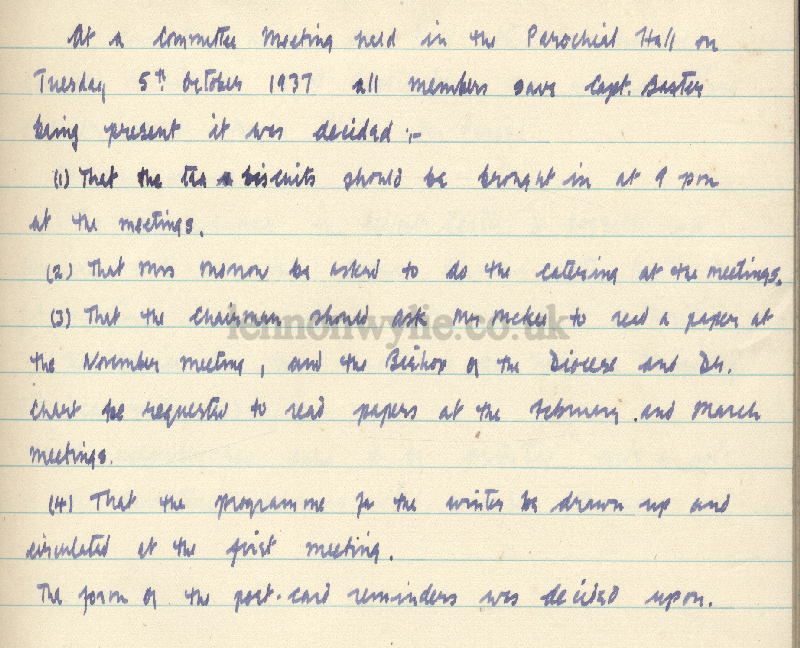 At a Committee Meeting held in the Parochial Hall on
Tuesday 5th October 1937 all members save Capt. Baxter
being present it was decided :-
(1) That the tea & biscuits should be brought in at 9 pm
at the meetings.
(2) That Mrs Morrow be asked to do the catering at the meetings.
(3) That the Chairman should ask Mr McKee to read a paper at
lennonwylie.co.uk
the November meeting, and the Bishop of the Diocese and Dr.
Chart be requested to read papers at the February and March
meetings.
(4) That the programme for the winter be drawn up and
circulated at the first meeting.
The form of the post-card reminders was decided upon.